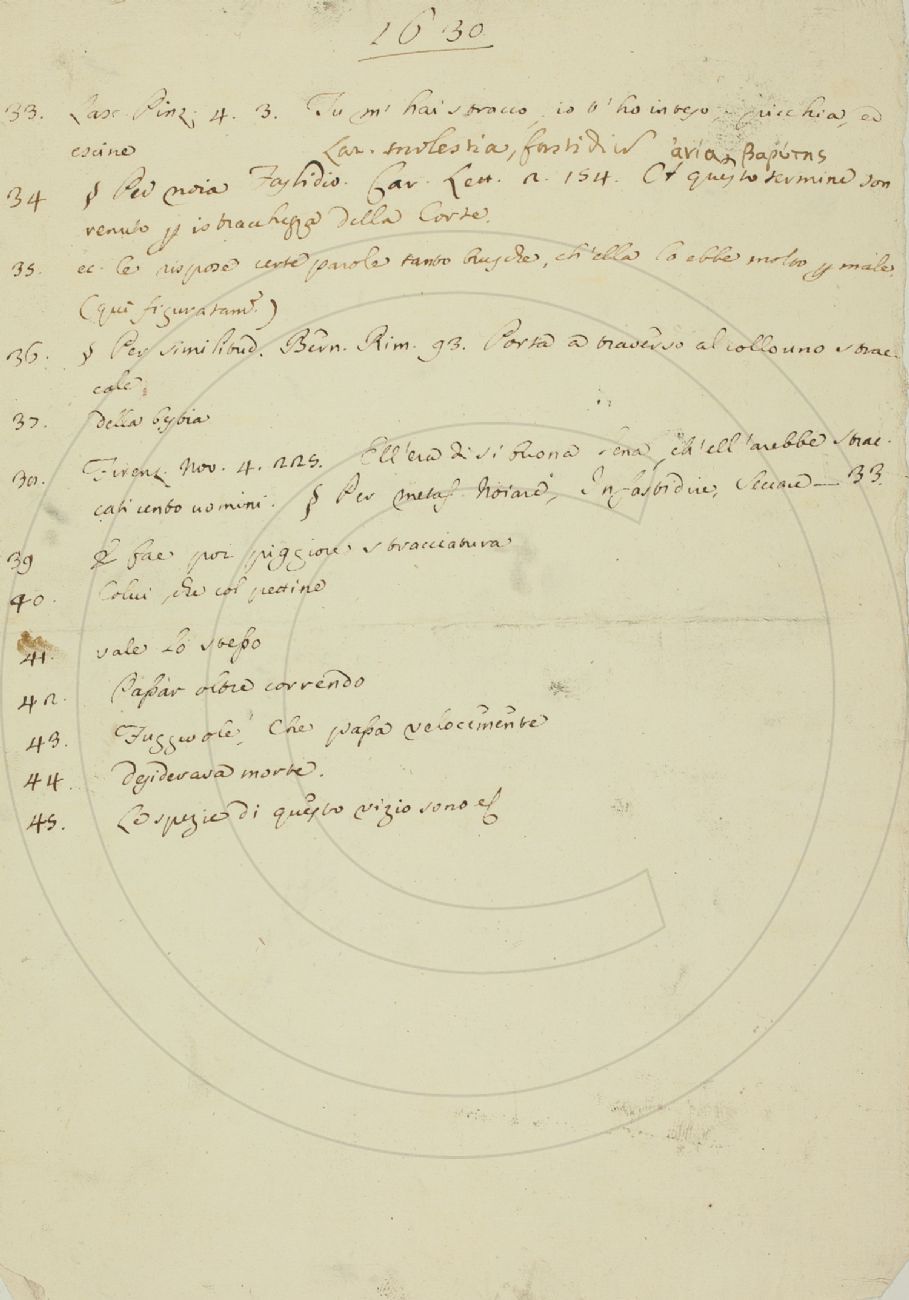 1630
33. Lasc. Pinz. 4. 3. Tu m' hai stracco, io t' ho inteso, picchia, ed
escine
Lat. molestia, fastidiū
34 § Per noia Fastidio. Car. Lett. 2. 154. Et questo termine son
venuto p istracchezza della Corte.
35. ec. le rispose certe parole tanto brusche, ch'ella lo ebbe molto p male.
(qui figuratam.e)
36. § Per similitud. Bern. Rim. 93. Porta a traverso al collo uno strac-
cale
37. della bybia
38. Firenz. Nov. 4. 225. Ell'era di sì buona lena, ch'ell'arebbe strac-
cati cento uomini. § Per metaf. Noiare, Infastidire, Seccare — 33.
39 E fae poi piggiore stracciatura
40. Colui, che col pettine
41. vale lo stesso
42. Passar oltre correndo
43. Fuggevole, Che passa velocemente
44. desiderava morte.
45. Le spezie di questo vizio sono es